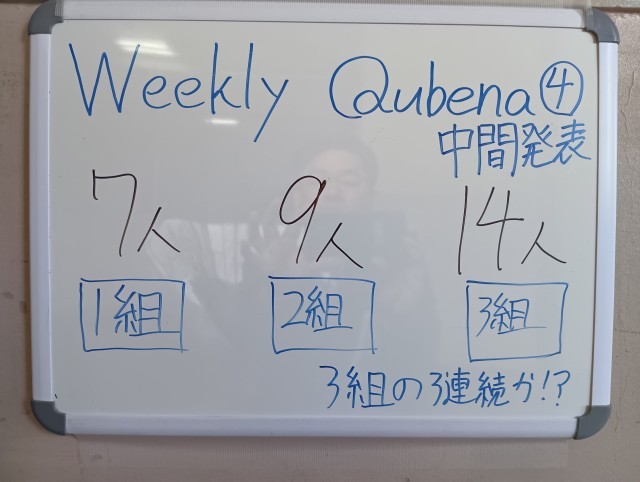 Weekly Qubena④
中間発表
7人 9人 14人
1組 2組 3組
3組の3連続か!?